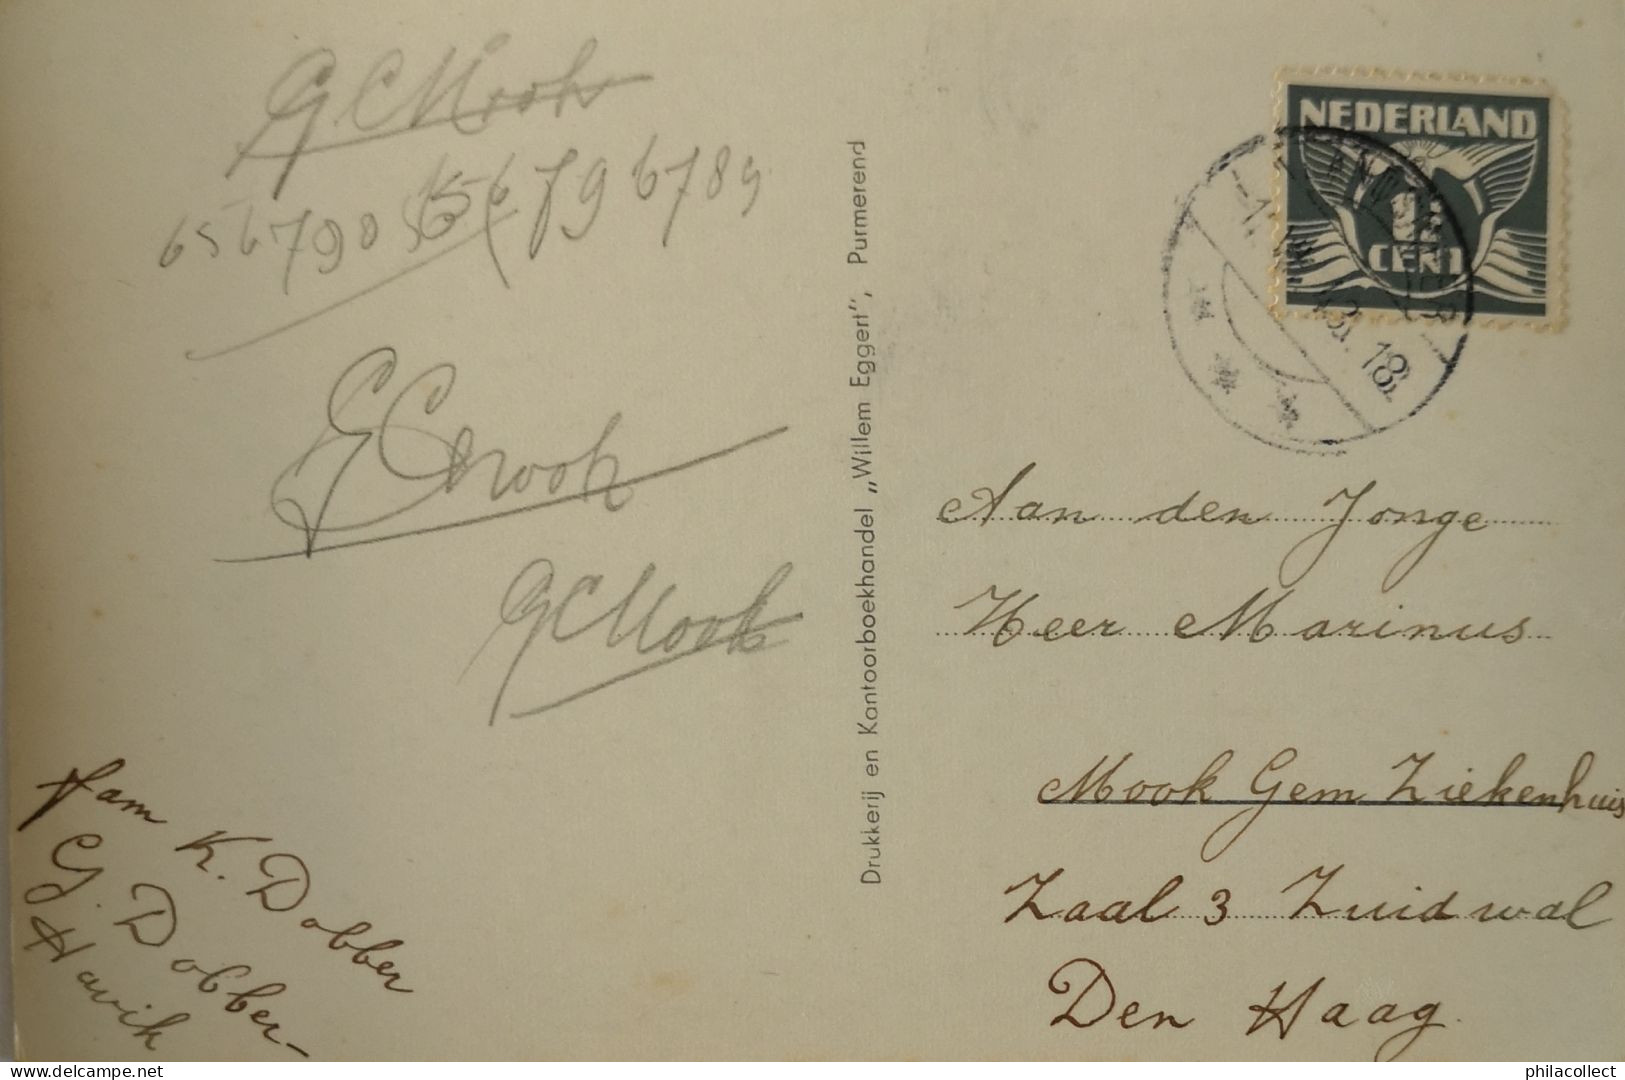 GCMook
GCMook
GCMook
Fam K. Dobber
G. Dobber-
Havik
Drukkerij en Kantoorboekhandel „Willem Eggert”, Purmerend
NEDERLAND
CENT
18
Aan den Jonge
Heer Marinus
Mook Gem Ziekenhuis
Zaal 3 Zuidwal
Den Haag.
philacollect